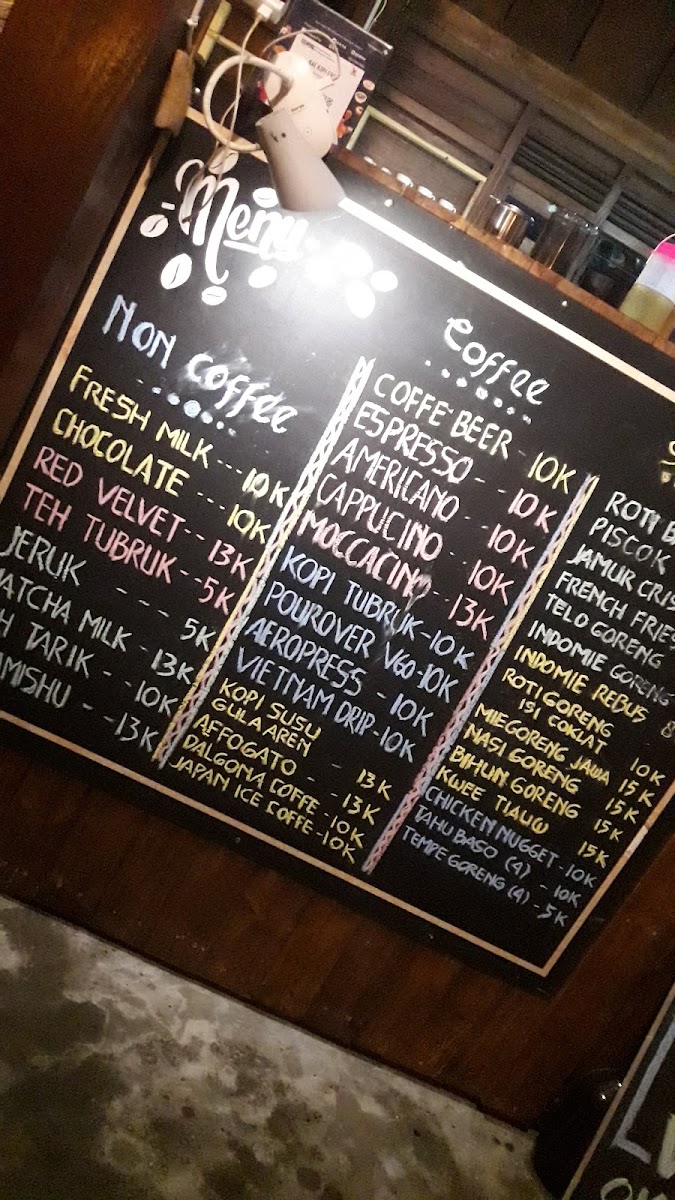 Menu
NON COFFEE
FRESH MILK --- 10K
CHOCOLATE --- 10K
RED VELVET -- 13K
TEH TUBRUK -- 5K
JERUK --- 5K
MATCHA MILK - 13K
TARIK -- 10K
-- 13K
Coffee
COFFE BEER - 10K
ESPRESSO -- 10K
AMERICANO -- 10K
CAPPUCINO -- 10K
MOCCACINO -- 13K
KOPI TUBRUK - 10K
POUROVER V60 - 10K
AEROPRESS - 10K
VIETNAM DRIP - 10K
KOPI SUSU
GULA AREN - 13K
AFFOGATO -- 13K
DALGONA COFFE - 10K
JAPAN ICE COFFE - 10K
ROTI
PISCOK
JAMUR
FRENCH FRIES
TELO GORENG
INDOMIE GORENG
INDOMIE REBUS
ROTI GORENG
ISI COKLAT 10K
MIE GORENG JAWA 15K
NASI GORENG 15K
BIHUN GORENG 15K
KWEE TIAUW 15K
CHICKEN NUGGET - 10K
TAHU BASO (4) - 10K
TEMPE GORENG (4) - 5K